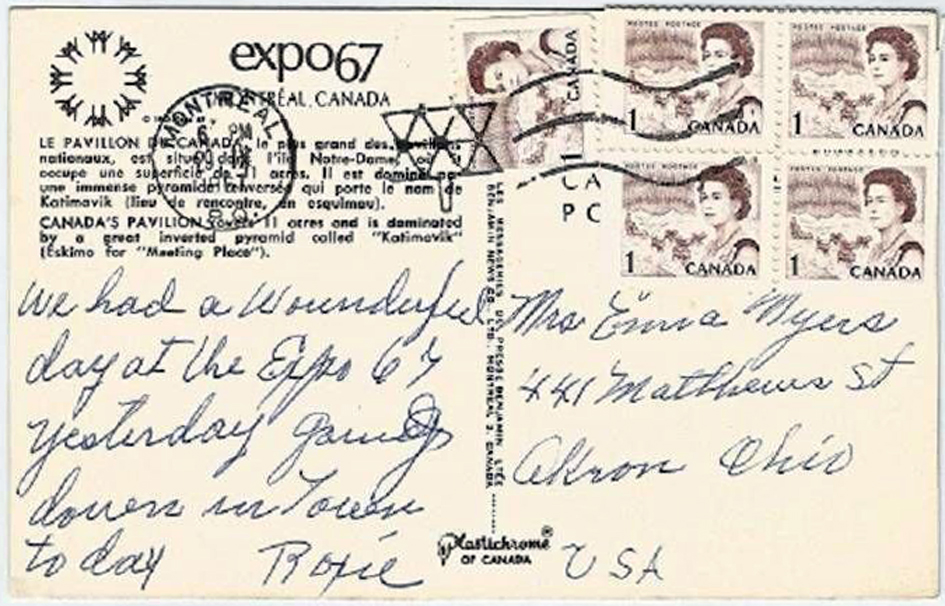 expo67
MONTRÉAL, CANADA
MONTREAL
PM
LE PAVILLON DU CANADA, le plus grand des pavillons
nationaux, est situé dans l'île Notre-Dame, où il
occupe une superficie de 11 acres. Il est dominé par
une immense pyramide renversée qui porte le nom de
Katimavik (lieu de rencontre, en esquimau).
CANADA'S PAVILION covers 11 acres and is dominated
by a great inverted pyramid called "Katimavik"
(Eskimo for "Meeting Place").
We had a Wounderful
day at the Expo 67
yesterday going
down in Town
today Roxie
LES MESSAGERIES DE PRESSE BENJAMIN LTÉE
BENJAMIN NEWS CO. LTD. MONTREAL 3, CANADA
Plastichrome®
OF CANADA
1 CANADA
POSTES POSTAGE
1 CANADA
POSTES POSTAGE
1 CANADA
POSTES POSTAGE
1 CANADA
POSTES POSTAGE
1 CANADA
CA
PC
Mrs Emma Myers
441 Matthews St
Akron Ohio
USA